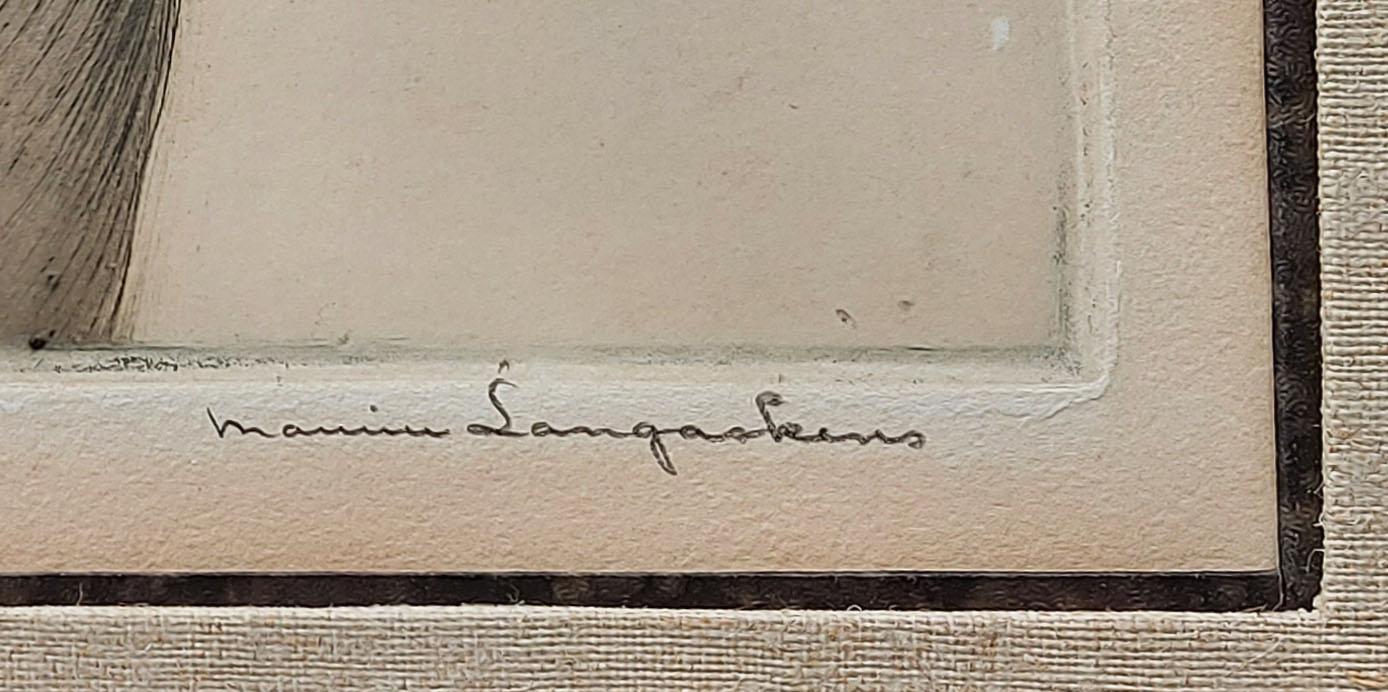 Maurice Langaskens